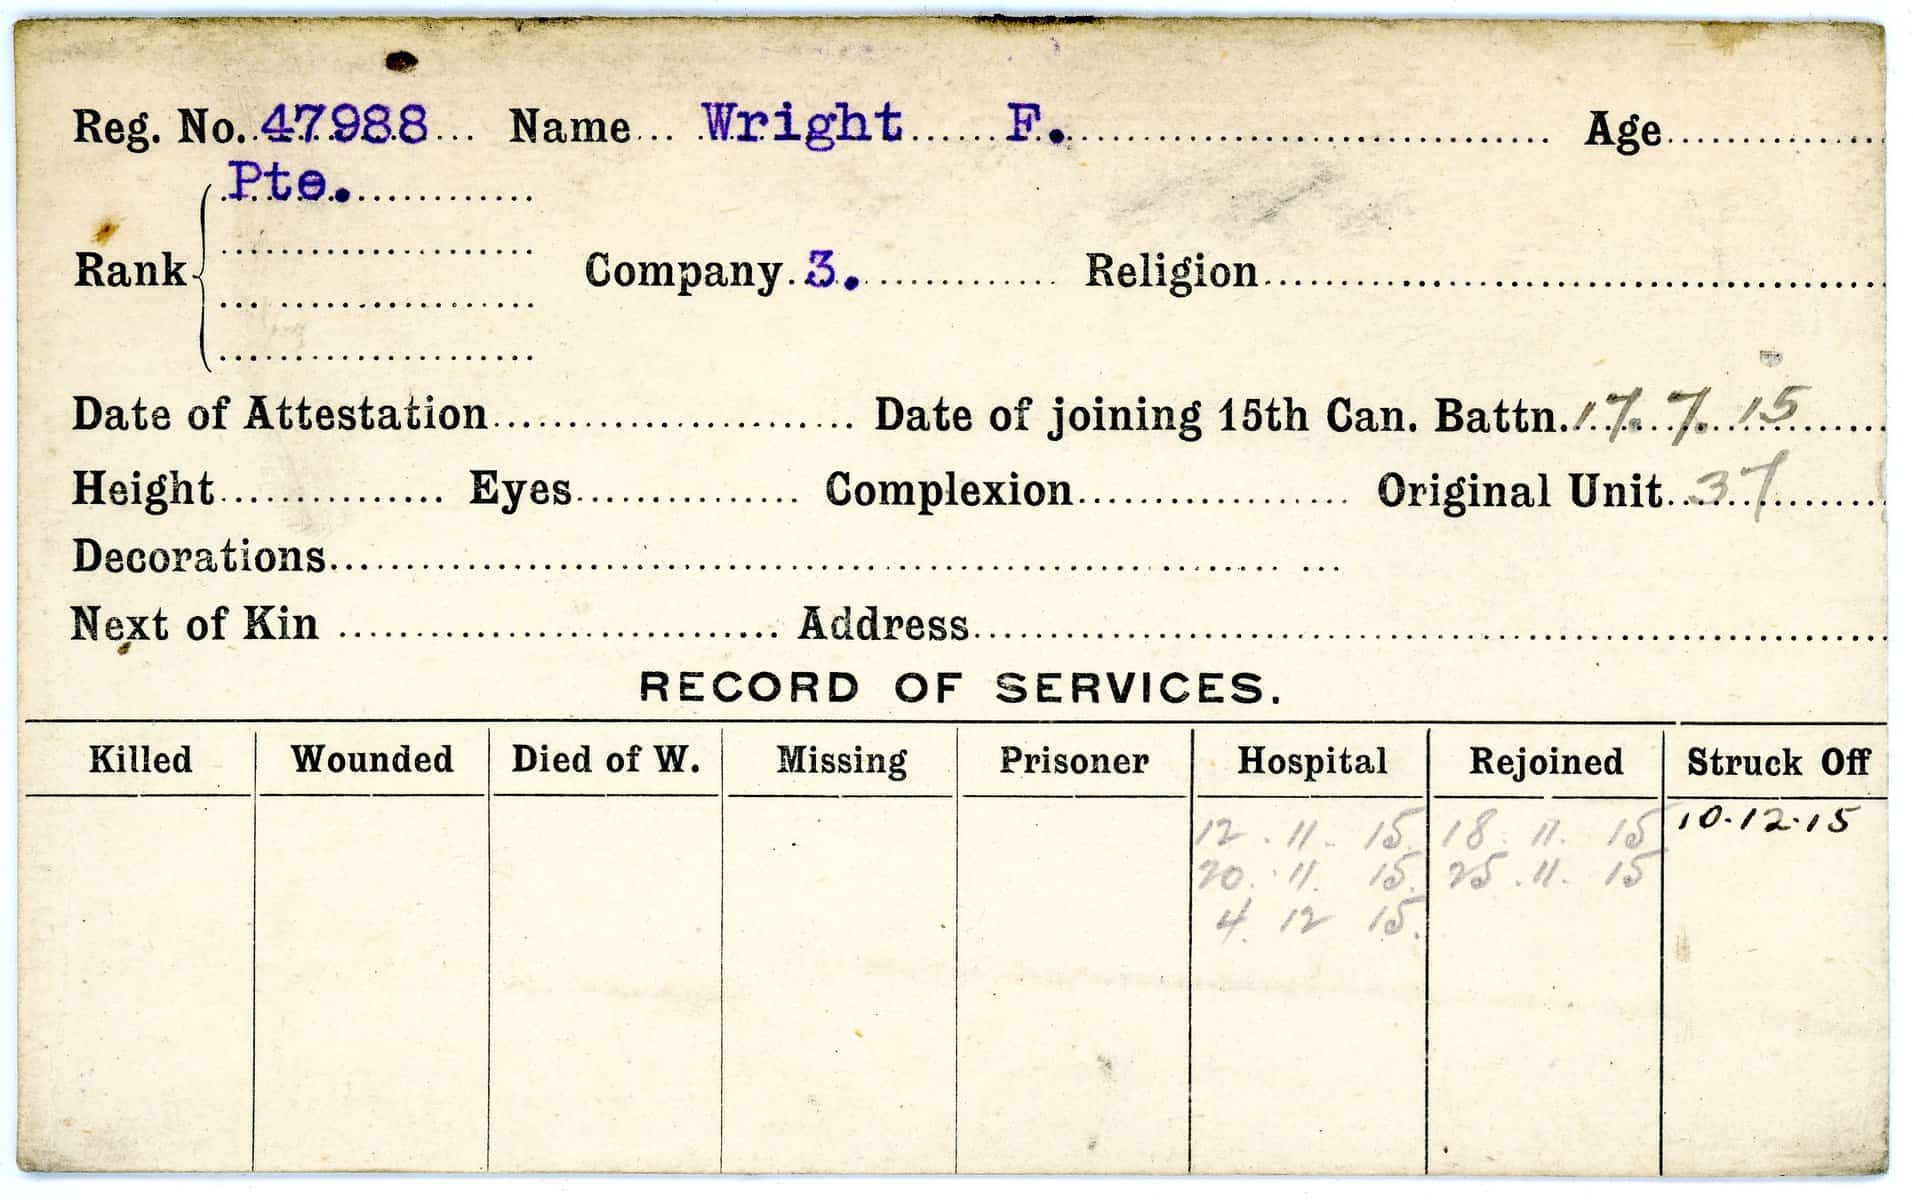 Reg. No. 47988 Name Wright F. Age
Pte.
Rank Company 3. Religion
Date of Attestation Date of joining 15th Can. Battn. 17. 7. 15
Height Eyes Complexion Original Unit 37
Decorations
Next of Kin Address
RECORD OF SERVICES.
Killed Wounded Died of W. Missing Prisoner Hospital Rejoined Struck Off
12. 11. 15. 18. 11. 15 10.12.15
20. 11. 15. 25. 11. 15
4. 12 15.